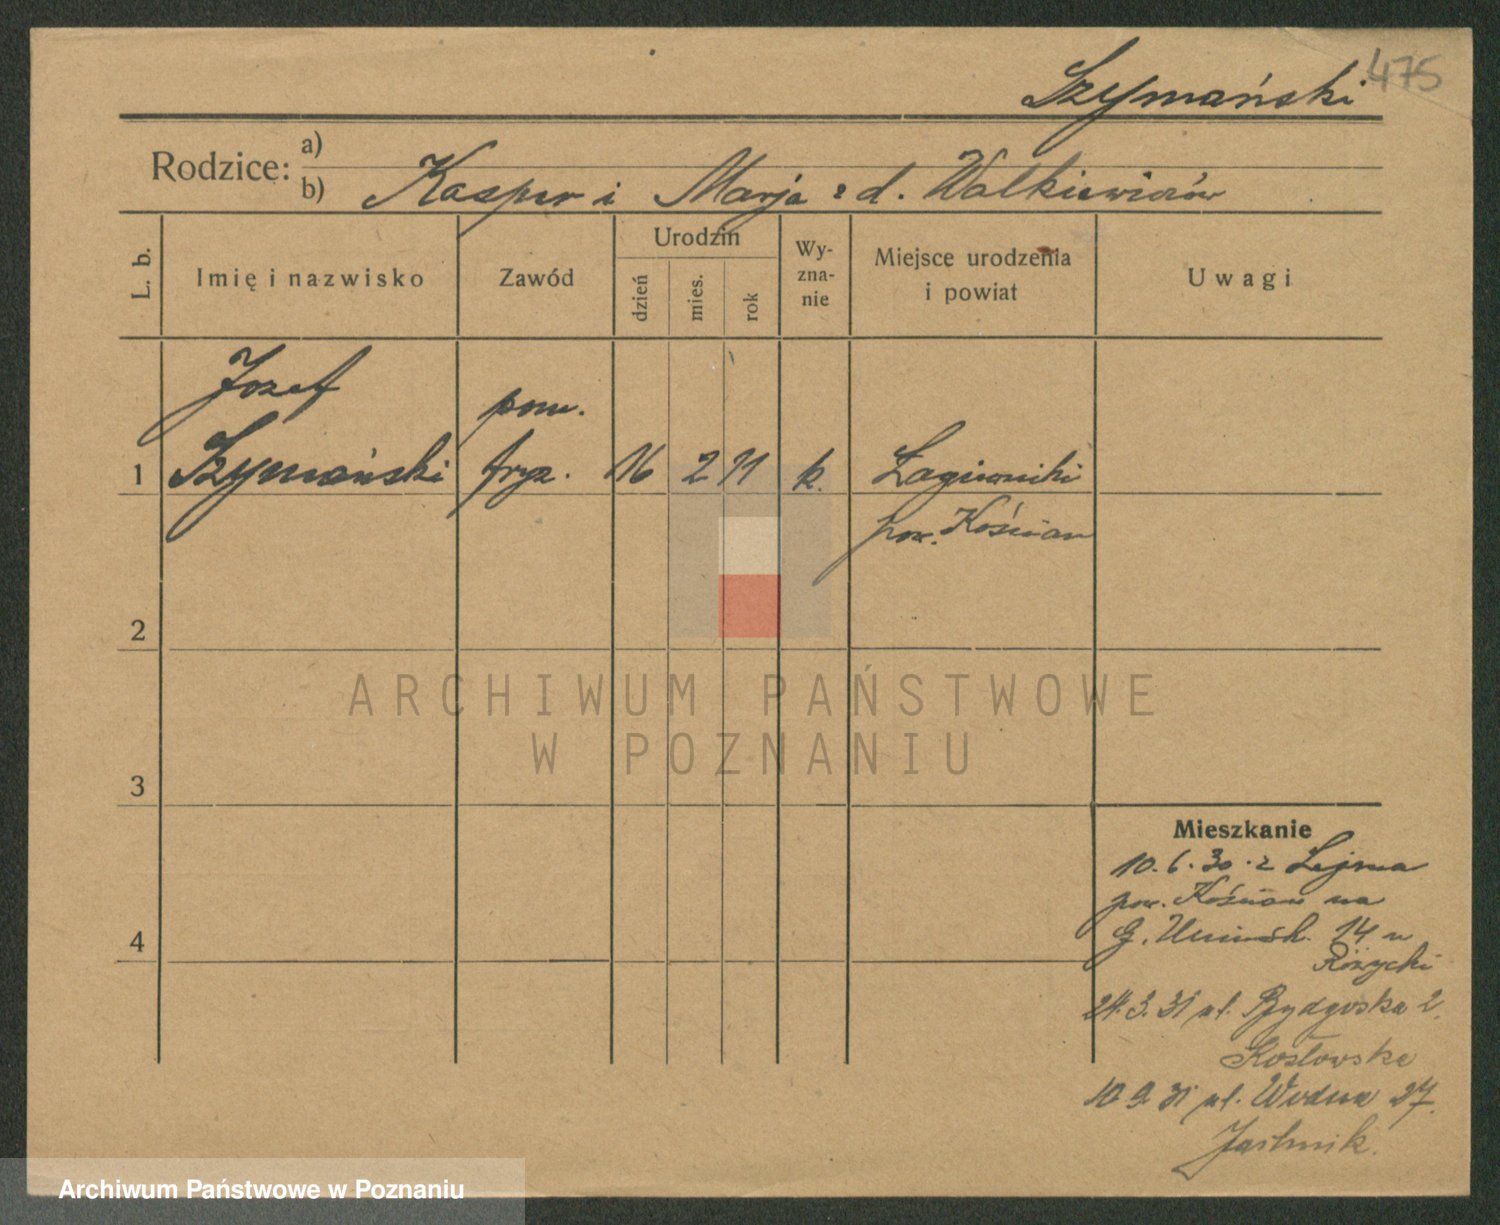 475
Szymański
Rodzice:
a)
b) Kasper i Marja z d. Walkiewiczów
L. b.
Imię i nazwisko
Zawód
Urodzin
dzień
mies.
rok
Wy-
zna-
nie
Miejsce urodzenia
i powiat
Uwagi
Józef
pom.
1 Szymański fryz. 16 2 11 k. Łagiewniki
pow. Kościan
2
3
4
Mieszkanie
10.6.30. z
pow. Kościan na
G. 14 u
Różycki
24.3.31 ul. Bydgoska 2.
Kozłowska
10.9.31 ul. Wodna 27.
ARCHIWUM PAŃSTWOWE
W POZNANIU
Archiwum Państwowe w Poznaniu